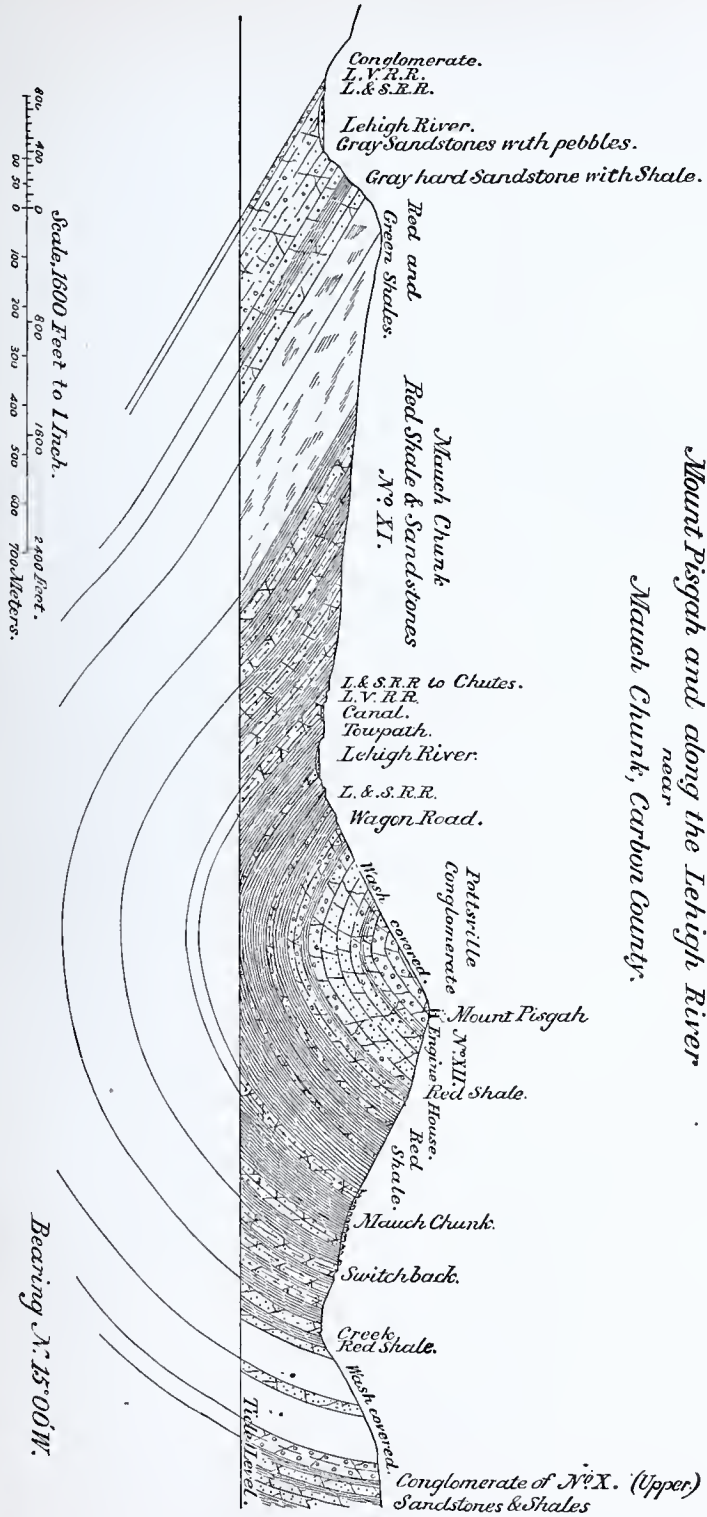 Mount Pisgah and along the Lehigh River
near
Mauch Chunk, Carbon County.
Conglomerate.
L.V.R.R.
L.&S.R.R.
Lehigh River.
Gray Sandstones with pebbles.
Gray hard Sandstone with Shale.
Red and
Green Shales.
Mauch Chunk
Red Shale & Sandstones
No XI.
L.&S.R.R to Chutes.
L.V.RR.
Canal.
Towpath.
Lehigh River.
L.&.S.R.R.
Wagon Road.
Wash covered.
Pottsville
Conglomerate
No XII.
Mount Pisgah
Engine House.
Red Shale.
Red
Shale.
Mauch Chunk.
Switchback.
Creek
Red Shale.
Wash covered.
Conglomerate of No X. (Upper)
Sandstones & Shales
Tide Level.
Scale, 1600 Feet to 1 Inch.
800 400 0 800 1600 2400 Feet.
100 50 0 100 200 300 400 500 600 700 Meters.
Bearing N. 15°00'W.